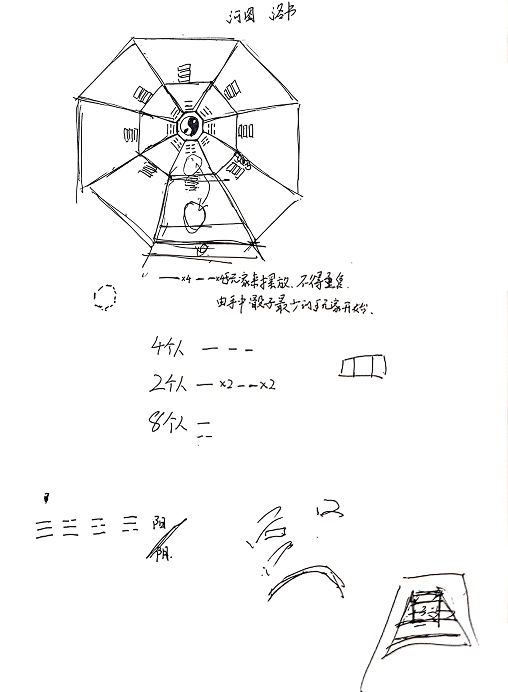 河图 洛书
一×4 --×4 玩家来摆放.不得重复.
由手中骰子最少的玩家开始.
4个人 — - -
2个人 —×2 --×2
8个人 — --
阳
阴.